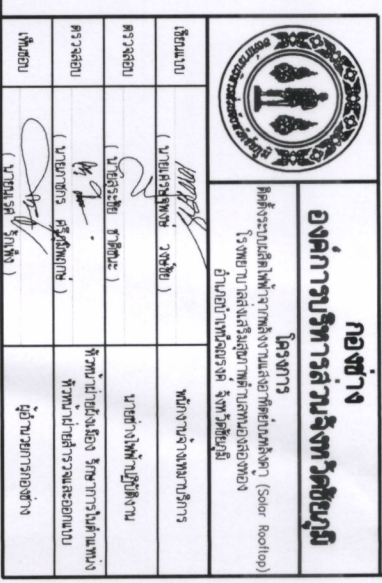 กองช่าง
องค์การบริหารส่วนจังหวัดชัยภูมิ
โครงการ
ติดตั้งระบบผลิตไฟฟ้าจากพลังงานแสงอาทิตย์บนหลังคา (Solar Rooftop)
โรงพยาบาลส่งเสริมสุขภาพตำบลหนองสองห้อง
อำเภอบำเหน็จณรงค์ จังหวัดชัยภูมิ
เขียนแบบ
( นายเศรษฐพงษ์ วงษ์ชัย )
พนักงานจ้างเหมาบริการ
ตรวจสอบ
( นายสุระชัย ชาติชนะ )
นายช่างไฟฟ้าปฏิบัติงาน
ตรวจสอบ
( นายภาชกร ศรีภูมิพฤกษ์ )
หัวหน้าฝ่ายผังเมือง รักษาการในตำแหน่ง
หัวหน้าฝ่ายสำรวจและออกแบบ
เห็นชอบ
( นายนเรศ รักเพ็ง )
ผู้อำนวยการกองช่าง